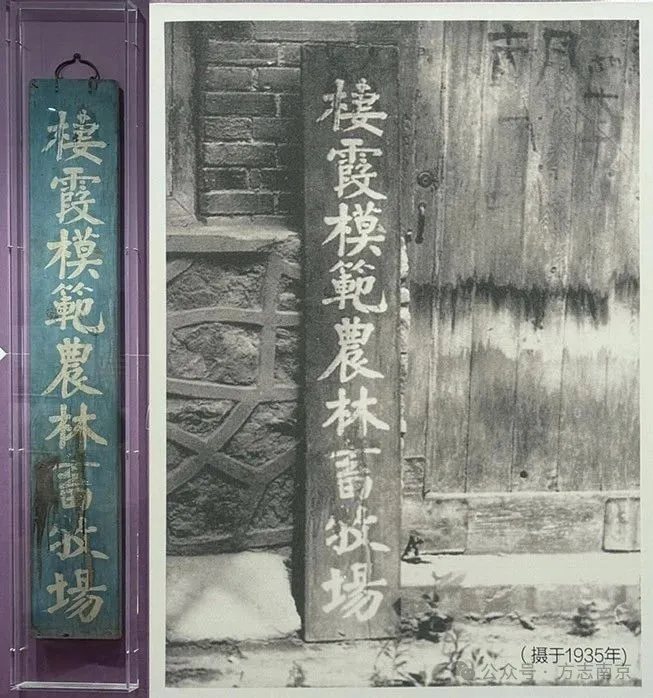 棲霞模範農林畜牧場
棲霞模範農林畜牧場
（摄于1935年）
公众号·方志南京